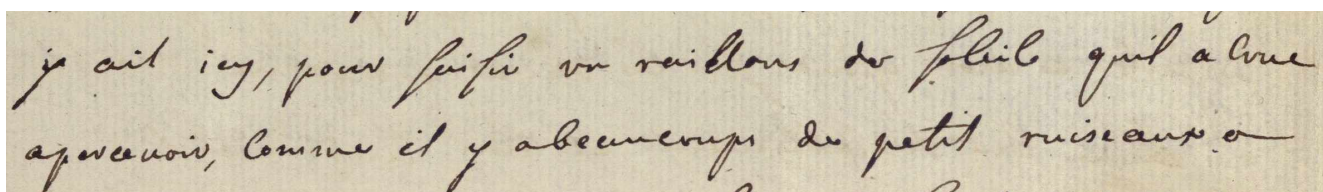 y ait icy, pour saisir un raillons de soleile quil a crue
apercevoir, comme il y a beaucoups de petit ruiseaux a